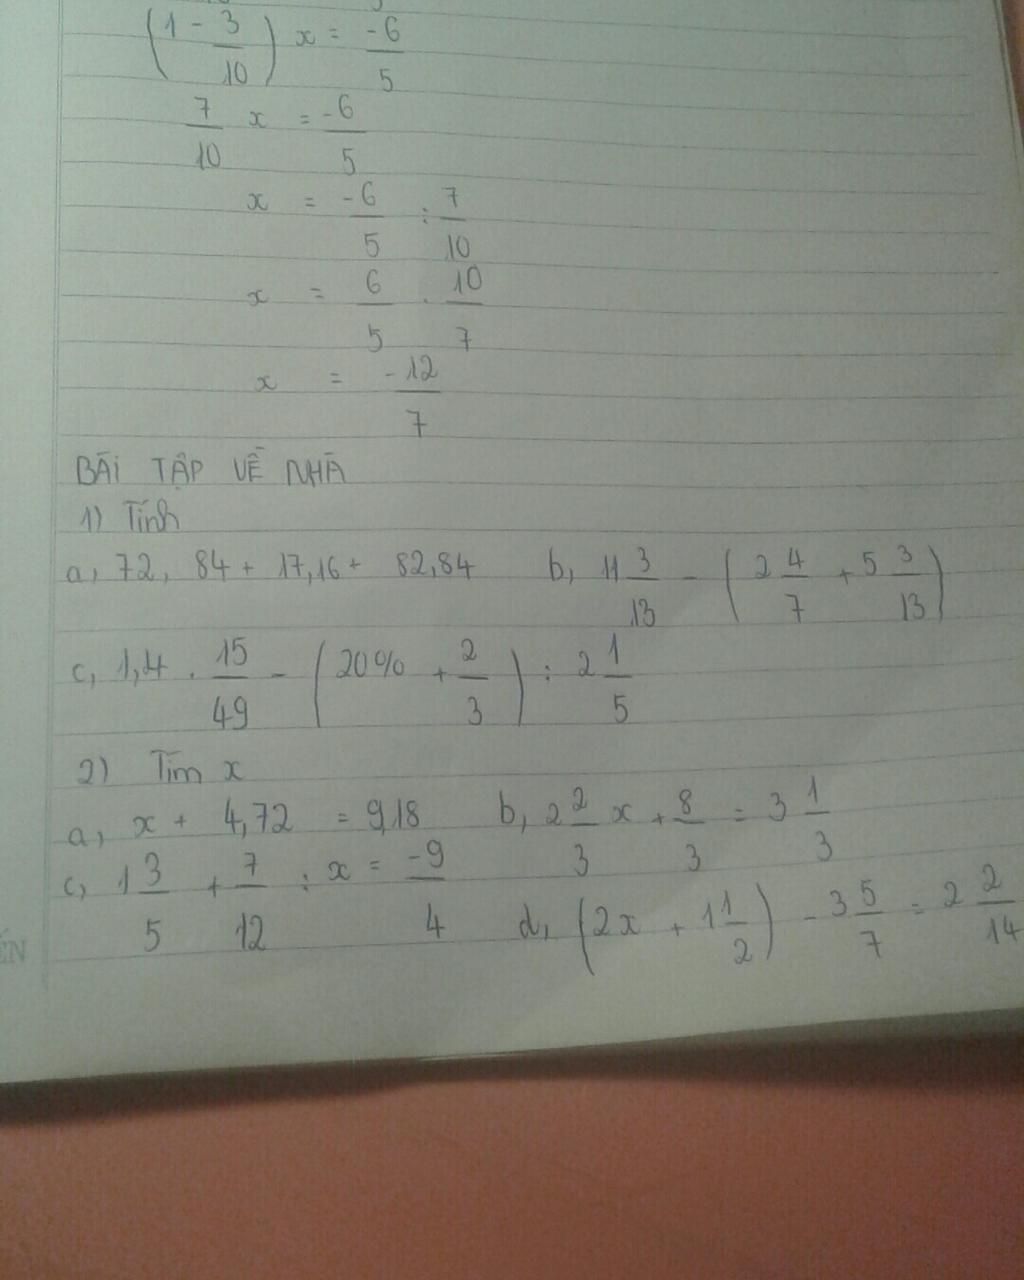 (1 - 3/10) x = -6/5
7/10 x = -6/5
x = -6/5 : 7/10
x = 6/5 . 10/7
x = -12/7
BÀI TẬP VỀ NHÀ
1) Tính
a, 72,84 + 17,16 + 82,84 b, 11 3/13 - (2 4/7 + 5 3/13)
c, 1,4 . 15/49 - (20% + 2/3) : 2 1/5
2) Tìm x
a, x + 4,72 = 9,18 b, 2 2/3 x + 8/3 = 3 1/3
c, 1 3/5 + 7/12 : x = -9/4 d, (2x + 1 1/2) - 3 5/7 = 2 2/14